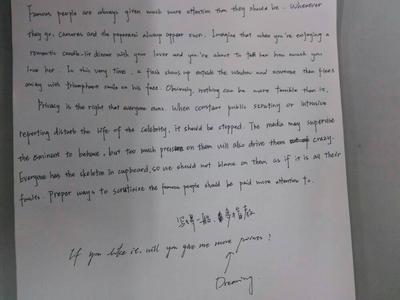 Famous people are always given much more attention than they should be. Whenever
they go, cameras and the paparazzi always appear soon. Imagine that when you're enjoying a
romantic candle-lit dinner with your lover and you're about to tell her how much you
love her. In this very time, a flash shows up outside the window and someone then flees
away with triumphant smile on his face. Obviously, nothing can be more terrible than it.
Privacy is the right that everyone owns. When constant public scrutiny or intrusive
reporting disturb the life of the celebrity, it should be stopped. The media may supervise
the eminent to behave, but too much pressure on them will also drive them crazy.
Everyone has the skeleton in cupboard, so we should not blame on them as if it is all their
faults. Proper ways to scrutinize the famous people should be paid more attention to.
写得一般，多指教
If you like it, will you give me more points?
Dreaming